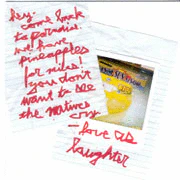 hey.
come back
to paradise.
we have
pineapples
for miles!
you don't
want to see
the natives
cry
- love as
laughter